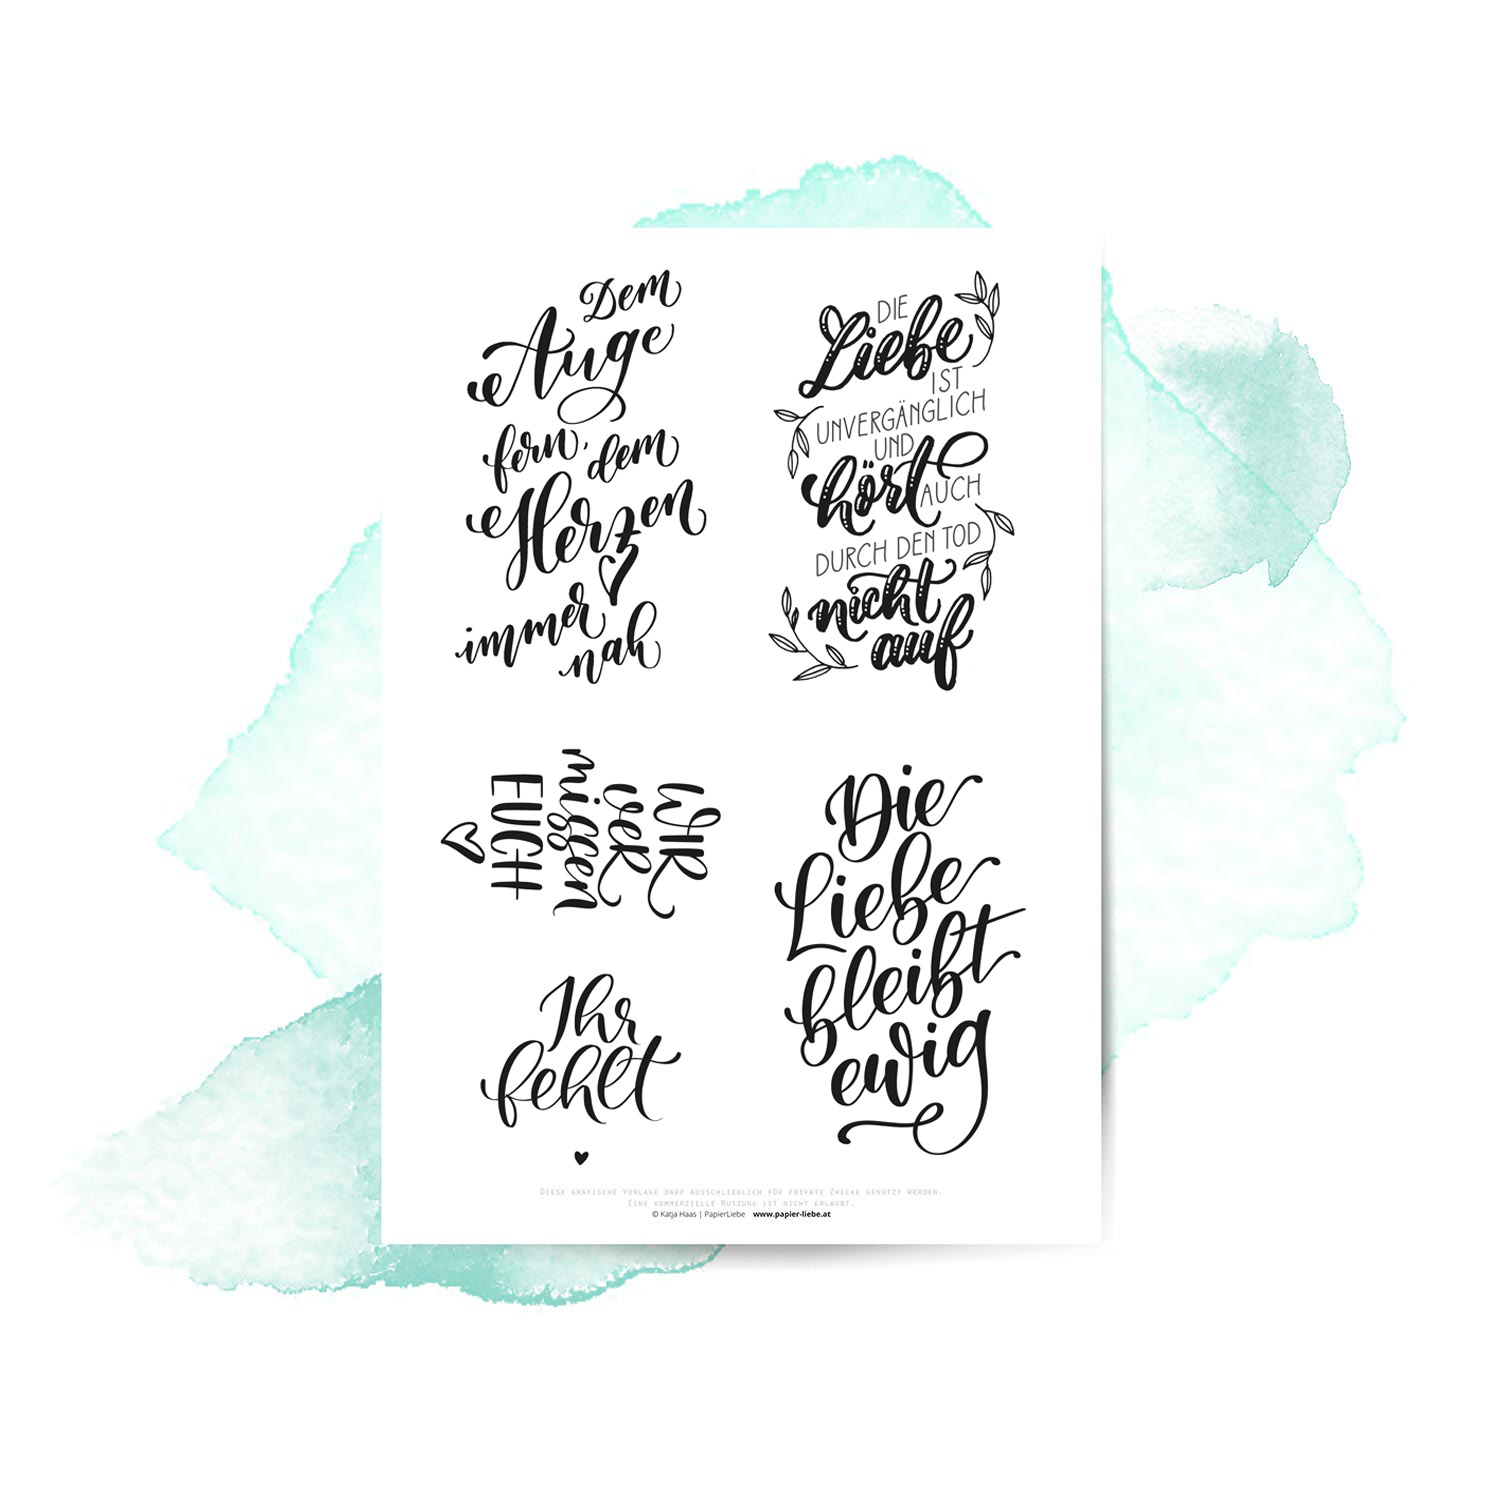 Dem
Auge
fern, dem
Herzen
immer
nah
DIE
Liebe
IST
UNVERGÄNGLICH
UND
hört
AUCH
DURCH DEN TOD
nicht
auf
WIR
VER
missen
EUCH
Ihr
fehlt
Die
Liebe
bleibt
ewig
Diese grafische Vorlage darf ausschließlich für private Zwecke genutzt werden.
Eine kommerzielle Nutzung ist nicht erlaubt.
© Katja Haas | PapierLiebe www.papier-liebe.at